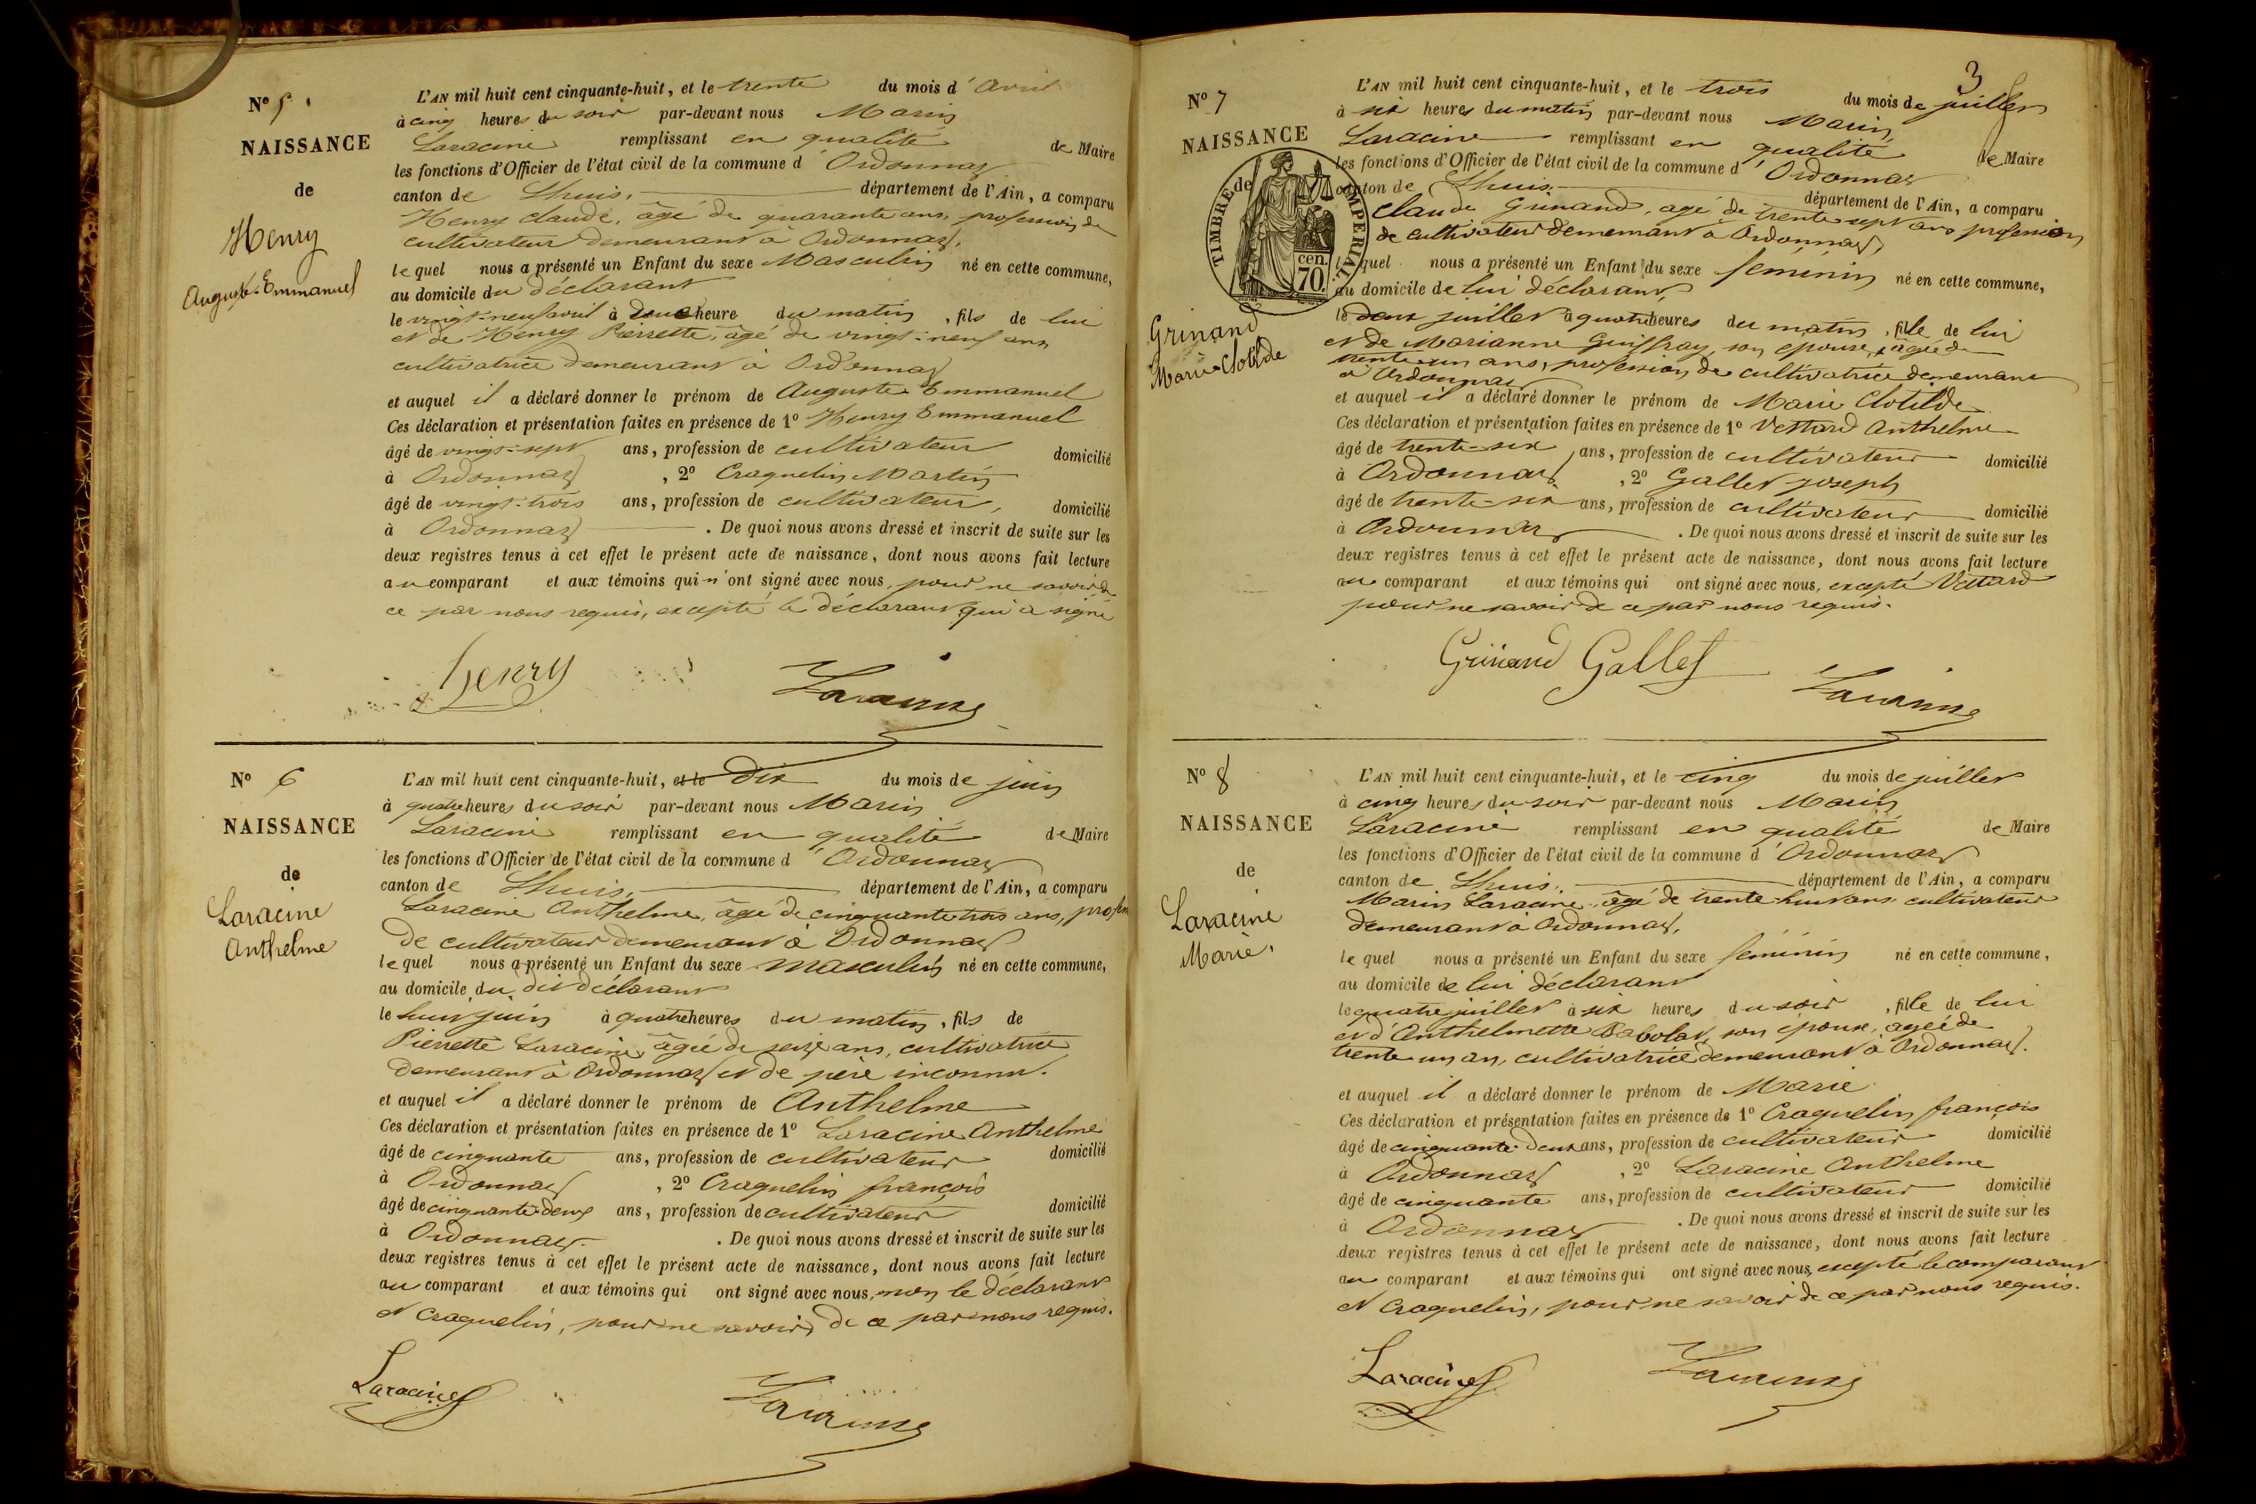 N° 5
NAISSANCE
de
Henry
Auguste-Emmanuel
L'AN mil huit cent cinquante-huit, et le trente du mois d'Avril
à cinq heures du soir par-devant nous Marin
Laracine remplissant en qualité de Maire
les fonctions d'Officier de l'état civil de la commune d'Ordonnaz
canton de Lhuis, département de l'Ain, a comparu
Henry Claude, âgé de quarante ans, profession de
cultivateur demeurant à Ordonnaz,
lequel nous a présenté un Enfant du sexe Masculin né en cette commune,
au domicile du déclarant
le vingt-neuf avril à heure du matin, fils de lui
et de Henry Pierrette, âgé de vingt-neuf ans
cultivatrice demeurant à Ordonnaz
et auquel il a déclaré donner le prénom de Auguste Emmanuel
Ces déclaration et présentation faites en présence de 1° Henry Emmanuel
âgé de vingt-sept ans, profession de cultivateur domicilié
à Ordonnaz, 2° Craquelin Martin
âgé de vingt-trois ans, profession de cultivateur, domicilié
à Ordonnaz. De quoi nous avons dressé et inscrit de suite sur les
deux registres tenus à cet effet le présent acte de naissance, dont nous avons fait lecture
au comparant et aux témoins qui n'ont signé avec nous, pour ne savoir de
ce par nous requis, excepté le déclarant qui a signé
henry Laracine
N° 6
NAISSANCE
de
Laracine
Anthelme
L'AN mil huit cent cinquante-huit, et le Dix du mois de juin
à quatre heures du soir par-devant nous Marin
Laracine remplissant en qualité de Maire
les fonctions d'Officier de l'état civil de la commune d'Ordonnaz
canton de Lhuis, département de l'Ain, a comparu
Laracine Anthelme, âgé de cinquante trois ans, profession
de cultivateur demeurant à Ordonnaz
lequel nous a présenté un Enfant du sexe masculin né en cette commune,
au domicile du dit déclarant
le huit juin à quatre heures du matin, fils de
Pierrette Laracine, âgée de seize ans, cultivatrice
demeurant à Ordonnaz et de père inconnu.
et auquel il a déclaré donner le prénom de Anthelme
Ces déclaration et présentation faites en présence de 1° Laracine Anthelme
âgé de cinquante ans, profession de cultivateur domicilié
à Ordonnaz, 2° Craquelin françois
âgé de cinquante-deux ans, profession de cultivateur domicilié
à Ordonnaz. De quoi nous avons dressé et inscrit de suite sur les
deux registres tenus à cet effet le présent acte de naissance, dont nous avons fait lecture
au comparant et aux témoins qui ont signé avec nous, non le déclarant
et Craquelin, pour ne savoir de ce par nous requis.
Laracine Laracine
3
N° 7
NAISSANCE
de
TIMBRE IMPERIAL
70 cen.
Grinand
Marie-Clotilde
L'AN mil huit cent cinquante-huit, et le trois du mois de juillet
à six heures du matin par-devant nous Marin
Laracine remplissant en qualité de Maire
les fonctions d'Officier de l'état civil de la commune d'Ordonnaz
canton de Lhuis. département de l'Ain, a comparu
Claude Grinand, âgé de trente sept ans profession
de cultivateur demeurant à Ordonnaz,
lequel nous a présenté un Enfant du sexe féminin né en cette commune,
au domicile de lui déclarant,
le deux juillet à quatre heures du matin, fille de lui
et de Marianne Guiffray, son épouse, âgée de
trente un ans, profession de cultivatrice demeurant
à Ordonnaz
et auquel il a déclaré donner le prénom de Marie Clotilde
Ces déclaration et présentation faites en présence de 1° Vettard Anthelme
âgé de trente-six ans, profession de cultivateur domicilié
à Ordonnaz, 2° Gallet joseph
âgé de trente-six ans, profession de cultivateur domicilié
à Ordonnaz. De quoi nous avons dressé et inscrit de suite sur les
deux registres tenus à cet effet le présent acte de naissance, dont nous avons fait lecture
au comparant et aux témoins qui ont signé avec nous, excepté Vettard
pour ne savoir de ce par nous requis.
Grinand Gallet Laracine
N° 8
NAISSANCE
de
Laracine
Marie.
L'AN mil huit cent cinquante-huit, et le cinq du mois de juillet
à cinq heures du soir par-devant nous Marin
Laracine remplissant en qualité de Maire
les fonctions d'Officier de l'état civil de la commune d'Ordonnaz
canton de Lhuis. département de l'Ain, a comparu
Marin Laracine, âgé de trente-huit ans cultivateur
demeurant à Ordonnaz,
lequel nous a présenté un Enfant du sexe féminin né en cette commune,
au domicile de lui déclarant
le quatre juillet à six heures du soir, fille de lui
et d'Anthelmette Babolat, son épouse, agée de
trente un an, cultivatrice demeurant à Ordonnaz.
et auquel il a déclaré donner le prénom de Marie
Ces déclaration et présentation faites en présence de 1° Craquelin françois
âgé de cinquante-deux ans, profession de cultivateur domicilié
à Ordonnaz, 2° Laracine Anthelme
âgé de cinquante ans, profession de cultivateur domicilié
à Ordonnaz. De quoi nous avons dressé et inscrit de suite sur les
deux registres tenus à cet effet le présent acte de naissance, dont nous avons fait lecture
au comparant et aux témoins qui ont signé avec nous, excepté le comparant
et Craquelin, pour ne savoir de ce par nous requis.
Laracine Laracine